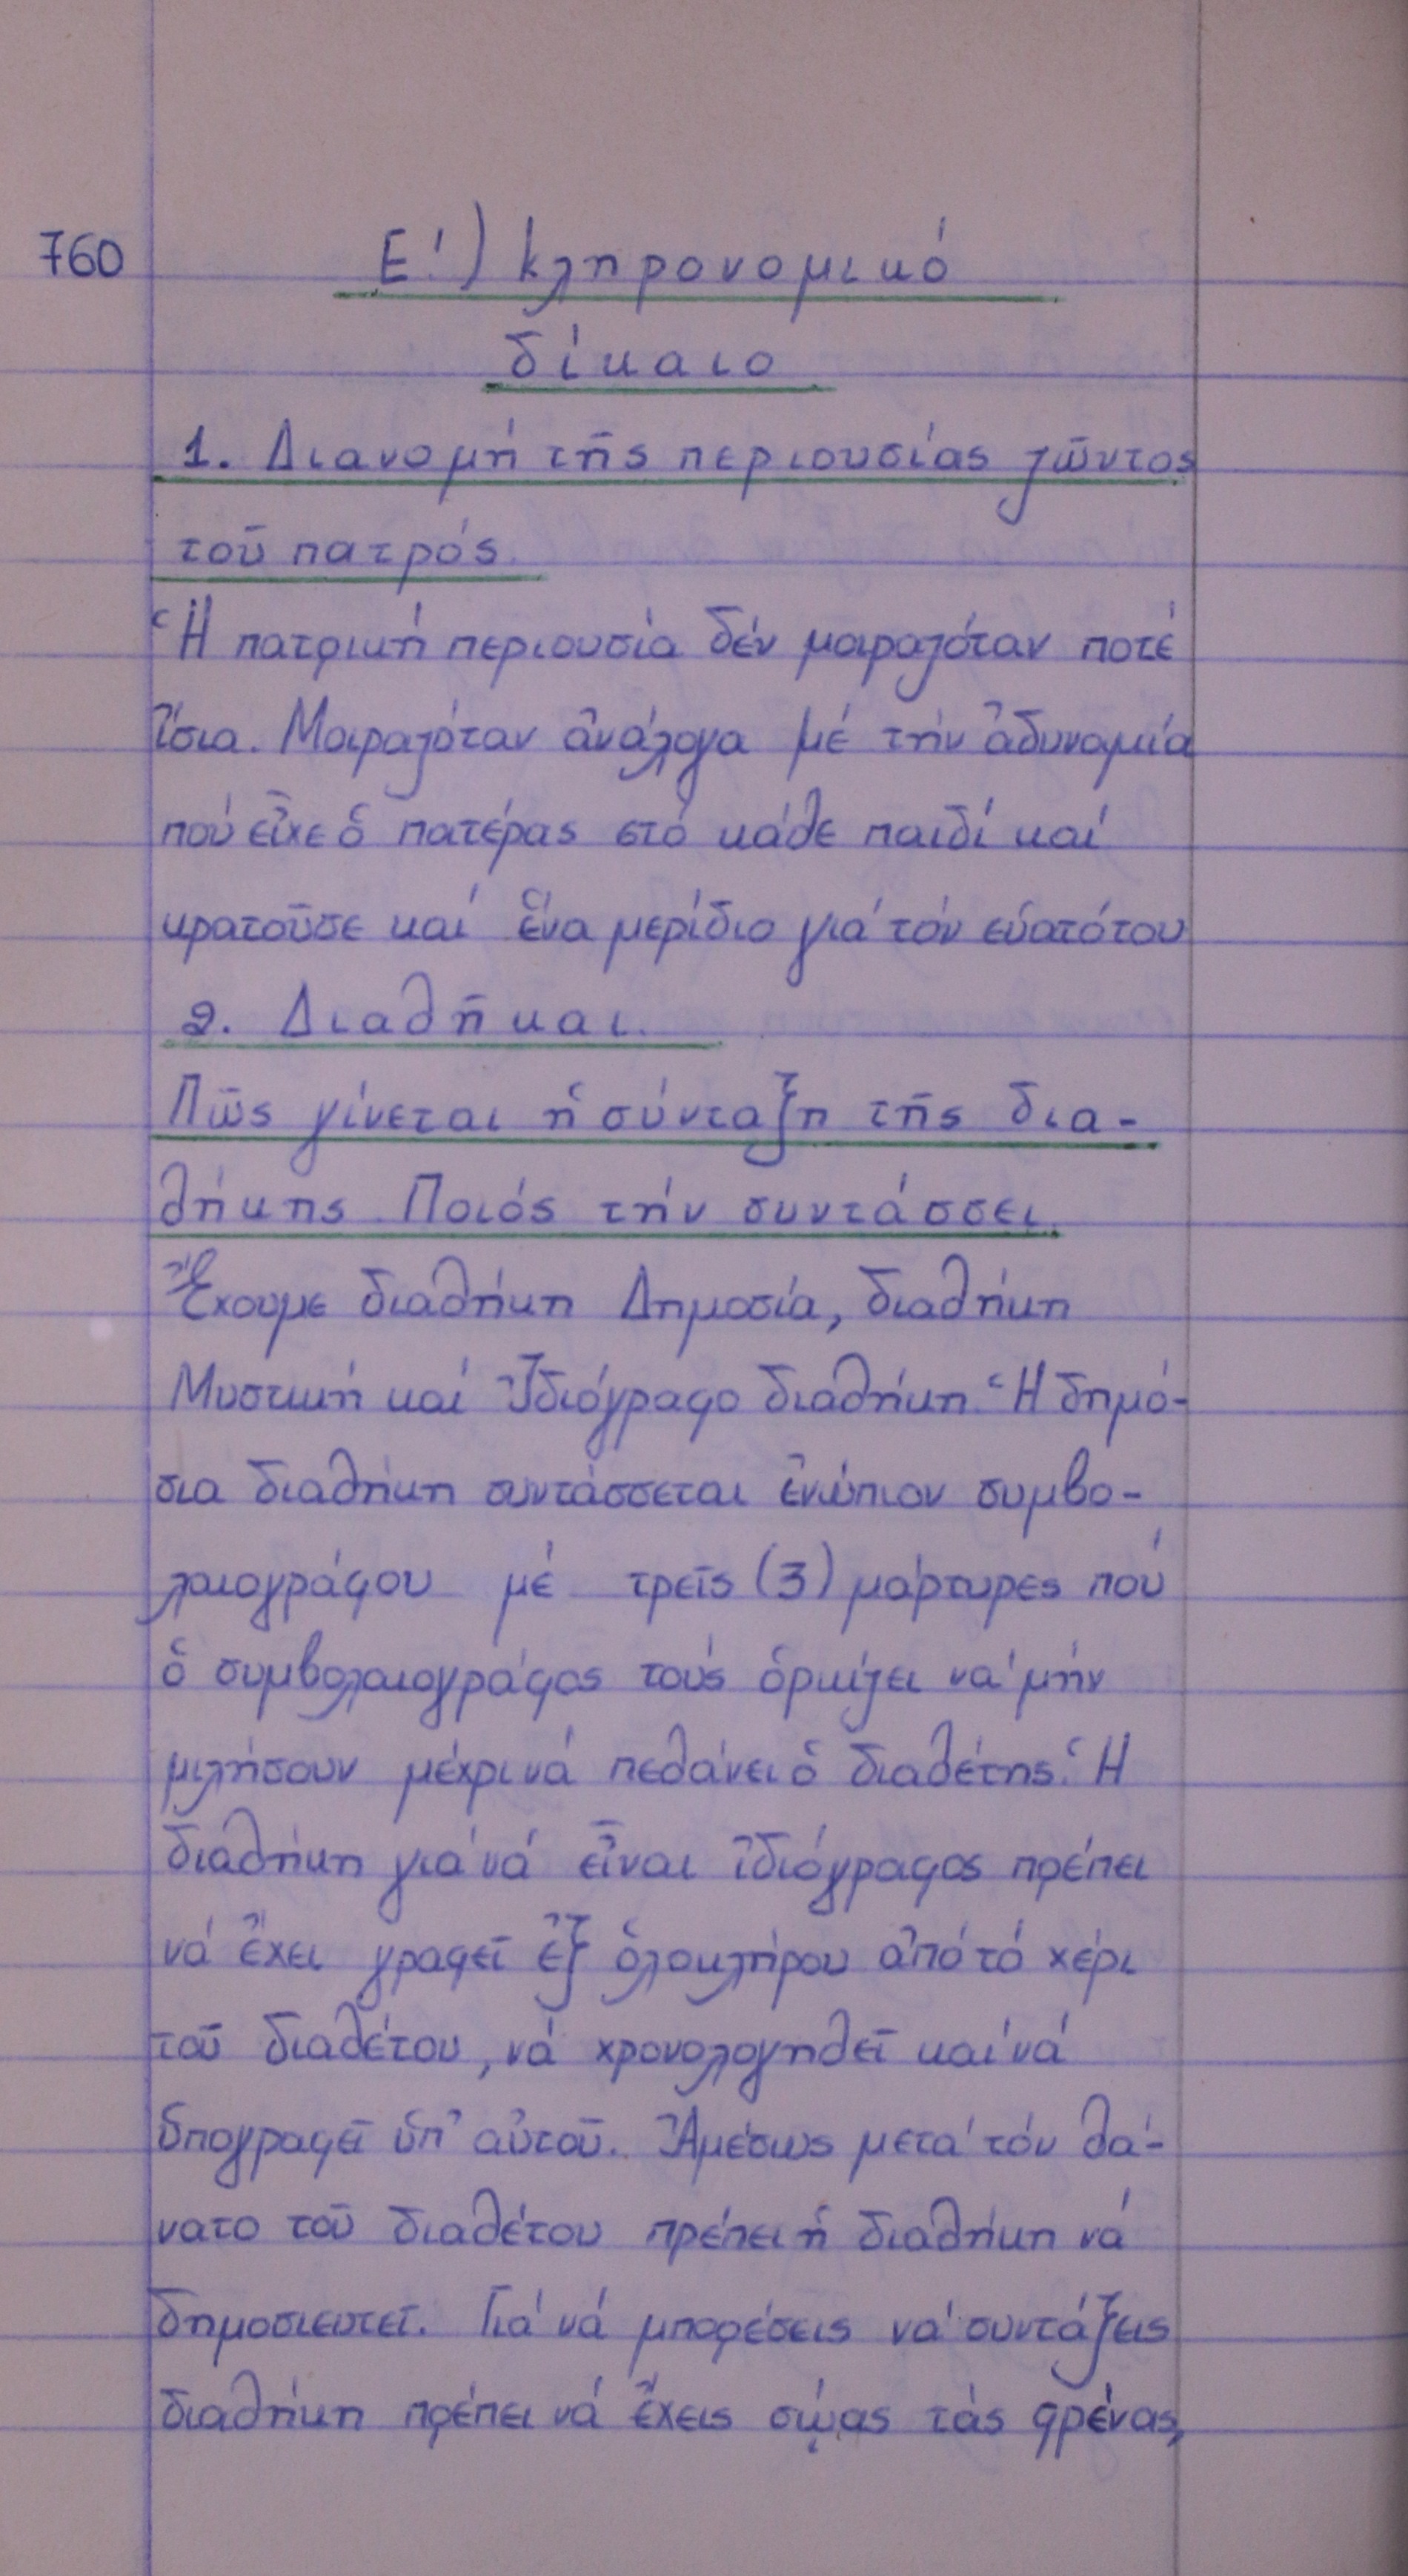 760
Ε΄) κληρονομικό
δίκαιο
1. Διανομή τῆς περιουσίας ζῶντος
τοῦ πατρός.
Ἡ πατρική περιουσία δέν μοιραζόταν ποτέ
ἴσια. Μοιραζόταν ἀνάλογα μέ τήν ἀδυναμία
πού εἶχε ὁ πατέρας στό κάθε παιδί καί
κρατοῦσε καί ἕνα μερίδιο γιά τόν εὐατότου
2. Διαθῆκαι.
Πῶς γίνεται ἡ σύνταξη τῆς δια-
θήκης Ποιός τήν συντάσσει.
Ἔχουμε διαθήκη Δημοσία, διαθήκη
Μυστική καί Ἰδιόγραφο διαθήκη. Ἡ δημό-
σια διαθήκη συντάσσεται ἐνώπιον συμβο-
λαιογράφου μέ τρεῖς (3) μάρτυρες πού
ὁ συμβολαιογράφος τούς ὁρκίζει νά μήν
μιλήσουν μέχρι νά πεθάνει ὁ διαθέτης. Ἡ
διαθήκη γιά νά εἶναι ἰδιόγραφος πρέπει
νά ἔχει γραφεῖ ἐξ ὁλοκλήρου ἀπό τό χέρι
τοῦ διαθέτου, νά χρονολογηθεῖ καί νά
ὑπογραφεῖ ὑπ' αὐτοῦ. Ἀμέσως μετά τόν θά-
νατο τοῦ διαθέτου πρέπει ἡ διαθήκη νά
δημοσιευτεῖ. Γιά νά μπορέσεις νά συντάξεις
διαθήκη πρέπει νά ἔχεις σώας τάς φρένας,